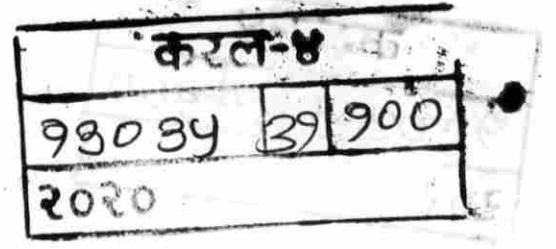 करल-४
१३०३५ ३९ १००
२०२०